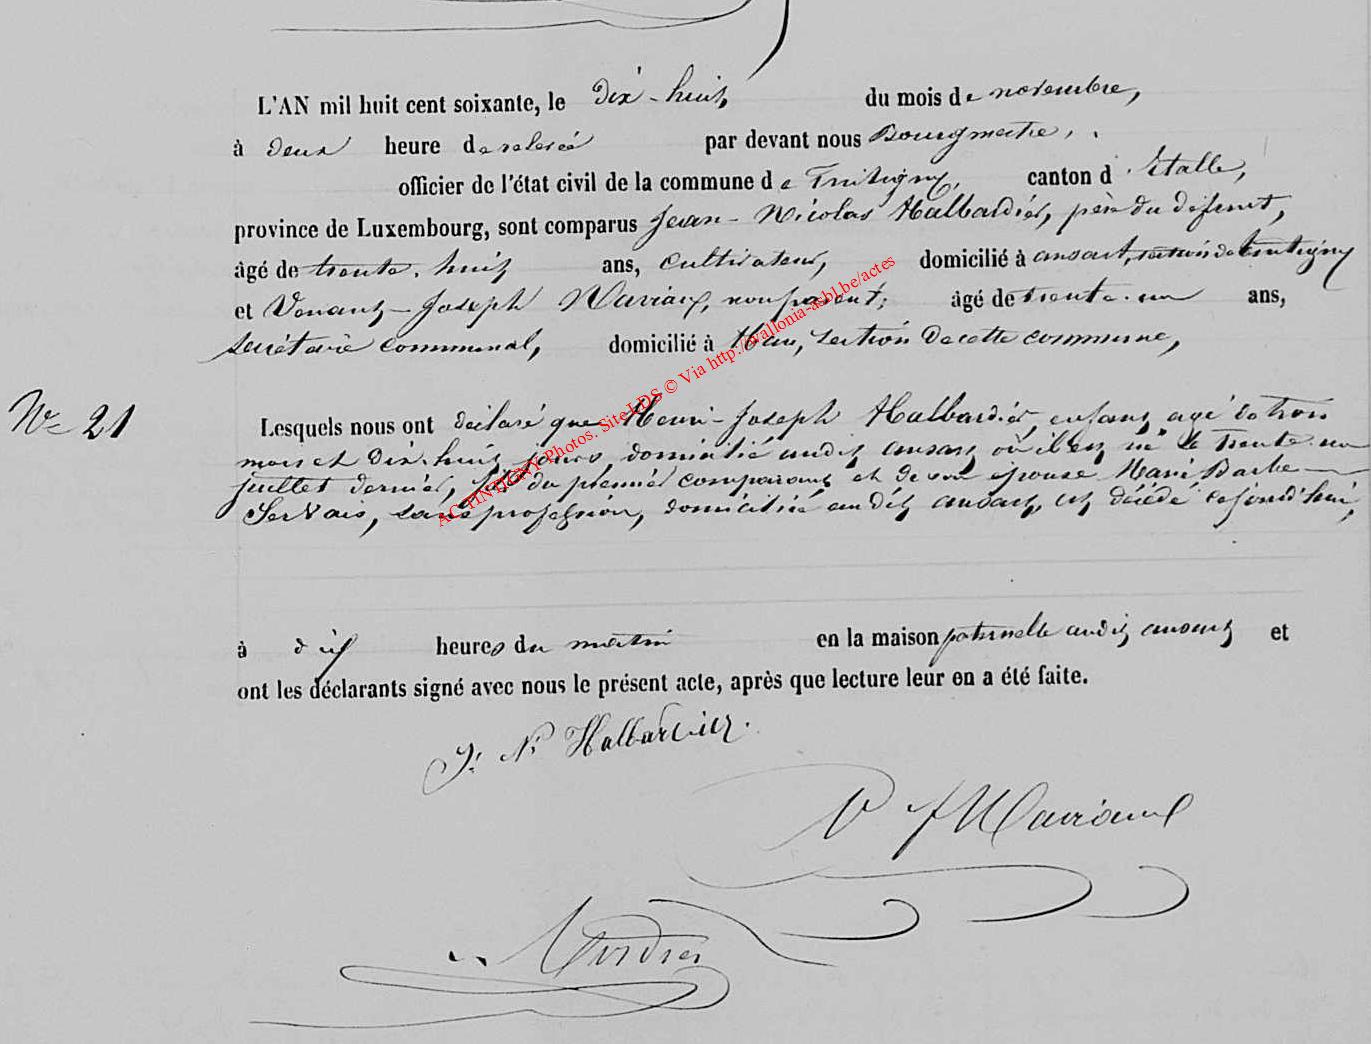 L'AN mil huit cent soixante, le dix-huit du mois de novembre,
à deux heure de relevée par devant nous Bourgmestre,
officier de l'état civil de la commune de Tintigny, canton d'Etalle,
province de Luxembourg, sont comparus Jean-Nicolas Halbardier, père du défunt,
âgé de trente-huit ans, cultivateur, domicilié à ansart, section de tintigny
et Venant-Joseph Wariaux, non parent; âgé de trente-un ans,
secrétaire communal, domicilié à Han, section de cette commune,
N° 21
Lesquels nous ont déclaré que Henri-Joseph Halbardier, enfant, agé de trois
mois et dix-huit jours, domicilié audit ansart où il est né le trente-un
juillet dernier, fils du premier comparant et de son épouse Marie Barbe
Servais, sans profession, domiciliée audit ansart, est décédé cejourd'hui,
à dix heures du matin en la maison paternelle audit ansart et
ont les déclarants signé avec nous le présent acte, après que lecture leur en a été faite.
J. N. Halbardier.
V J Wariaux
ACTINTIGNY Photos. Site LDS © Via http://wallonia-asbl.be/actes